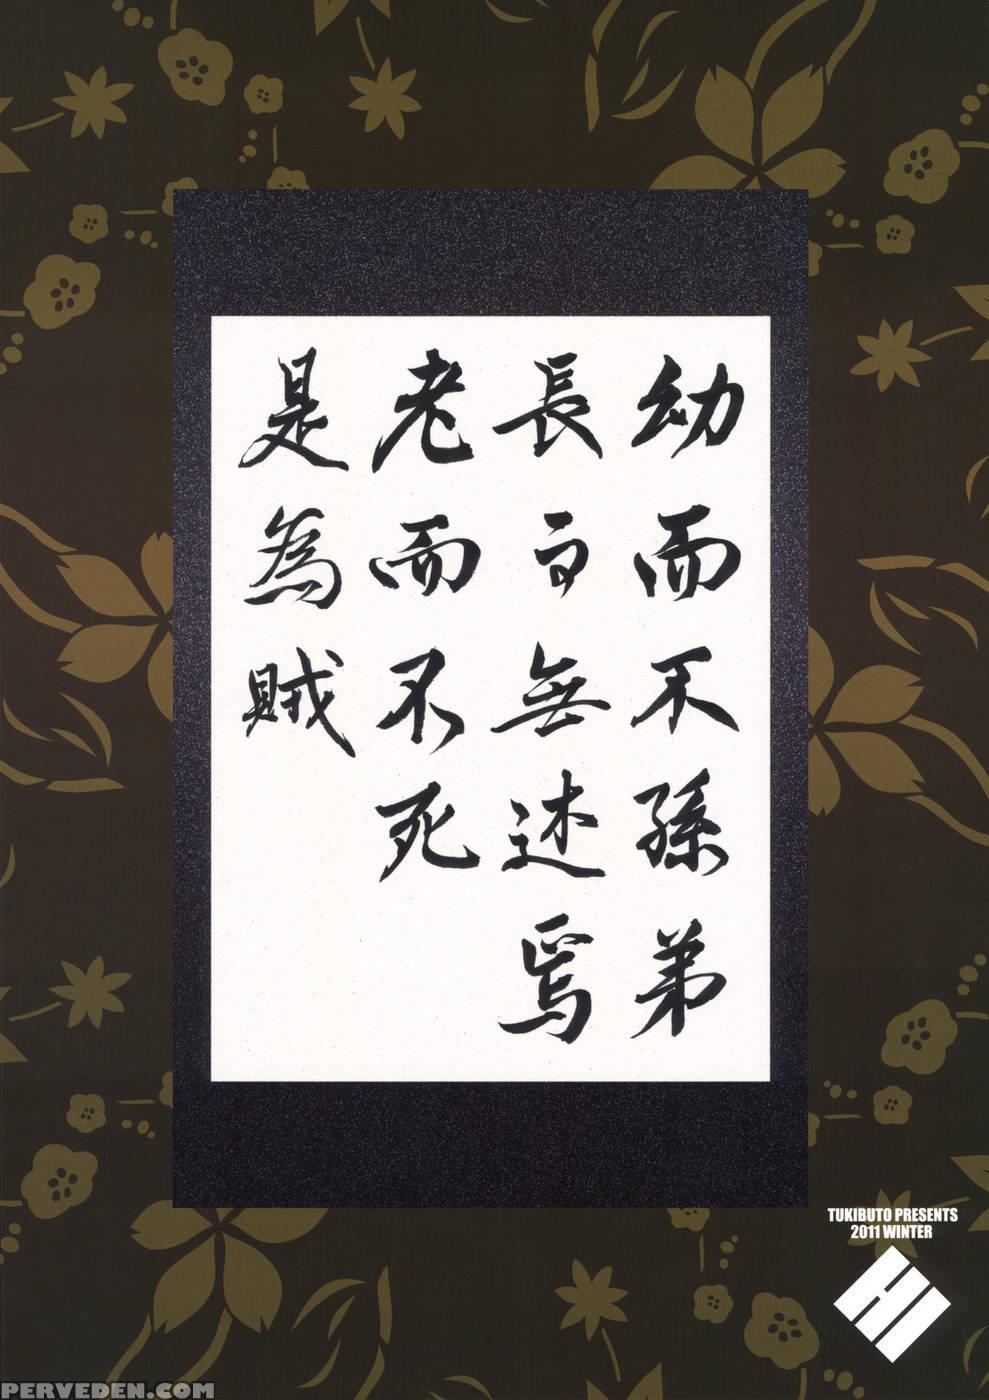 幼而不孫弟
長而無述焉
老而不死
是為賊
TUKIBUTO PRESENTS
2011 WINTER
HI
PERVEDEN.COM